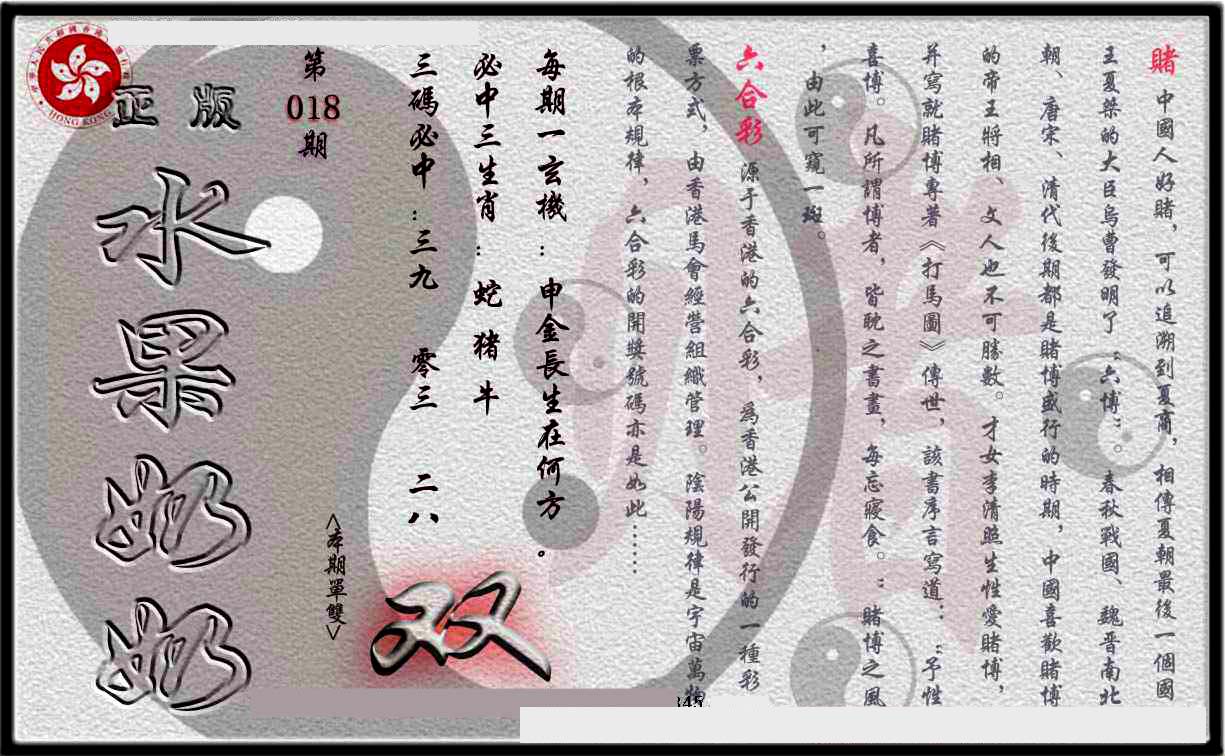 賭 中國人好賭，可以追溯到夏商，相傳夏朝最後一個國
王夏桀的大臣烏曹發明了“六博”。春秋戰國、魏晉南北
朝、唐宋、清代後期都是賭博盛行的時期，中國喜歡賭博
的帝王將相、文人也不可勝數。才女李清照生性愛賭博，
并寫就賭博專著《打馬圖》傳世，該書序言寫道：“予性
喜博。凡所謂博者，皆耽之書畫，每忘寢食。”賭博之風
，由此可窺一斑。
六合彩 源于香港的六合彩，為香港公開發行的一種彩
票方式，由香港馬會經營組織管理。陰陽規律是宇宙萬物
的根本規律，六合彩的開獎號碼亦是如此……
每期一玄機：申金長生在何方。
必中三生肖：蛇 猪 牛
三碼必中：三九 零三 二八
<本期單雙>
双
第018期
正版
水果奶奶
HONG KONG
345